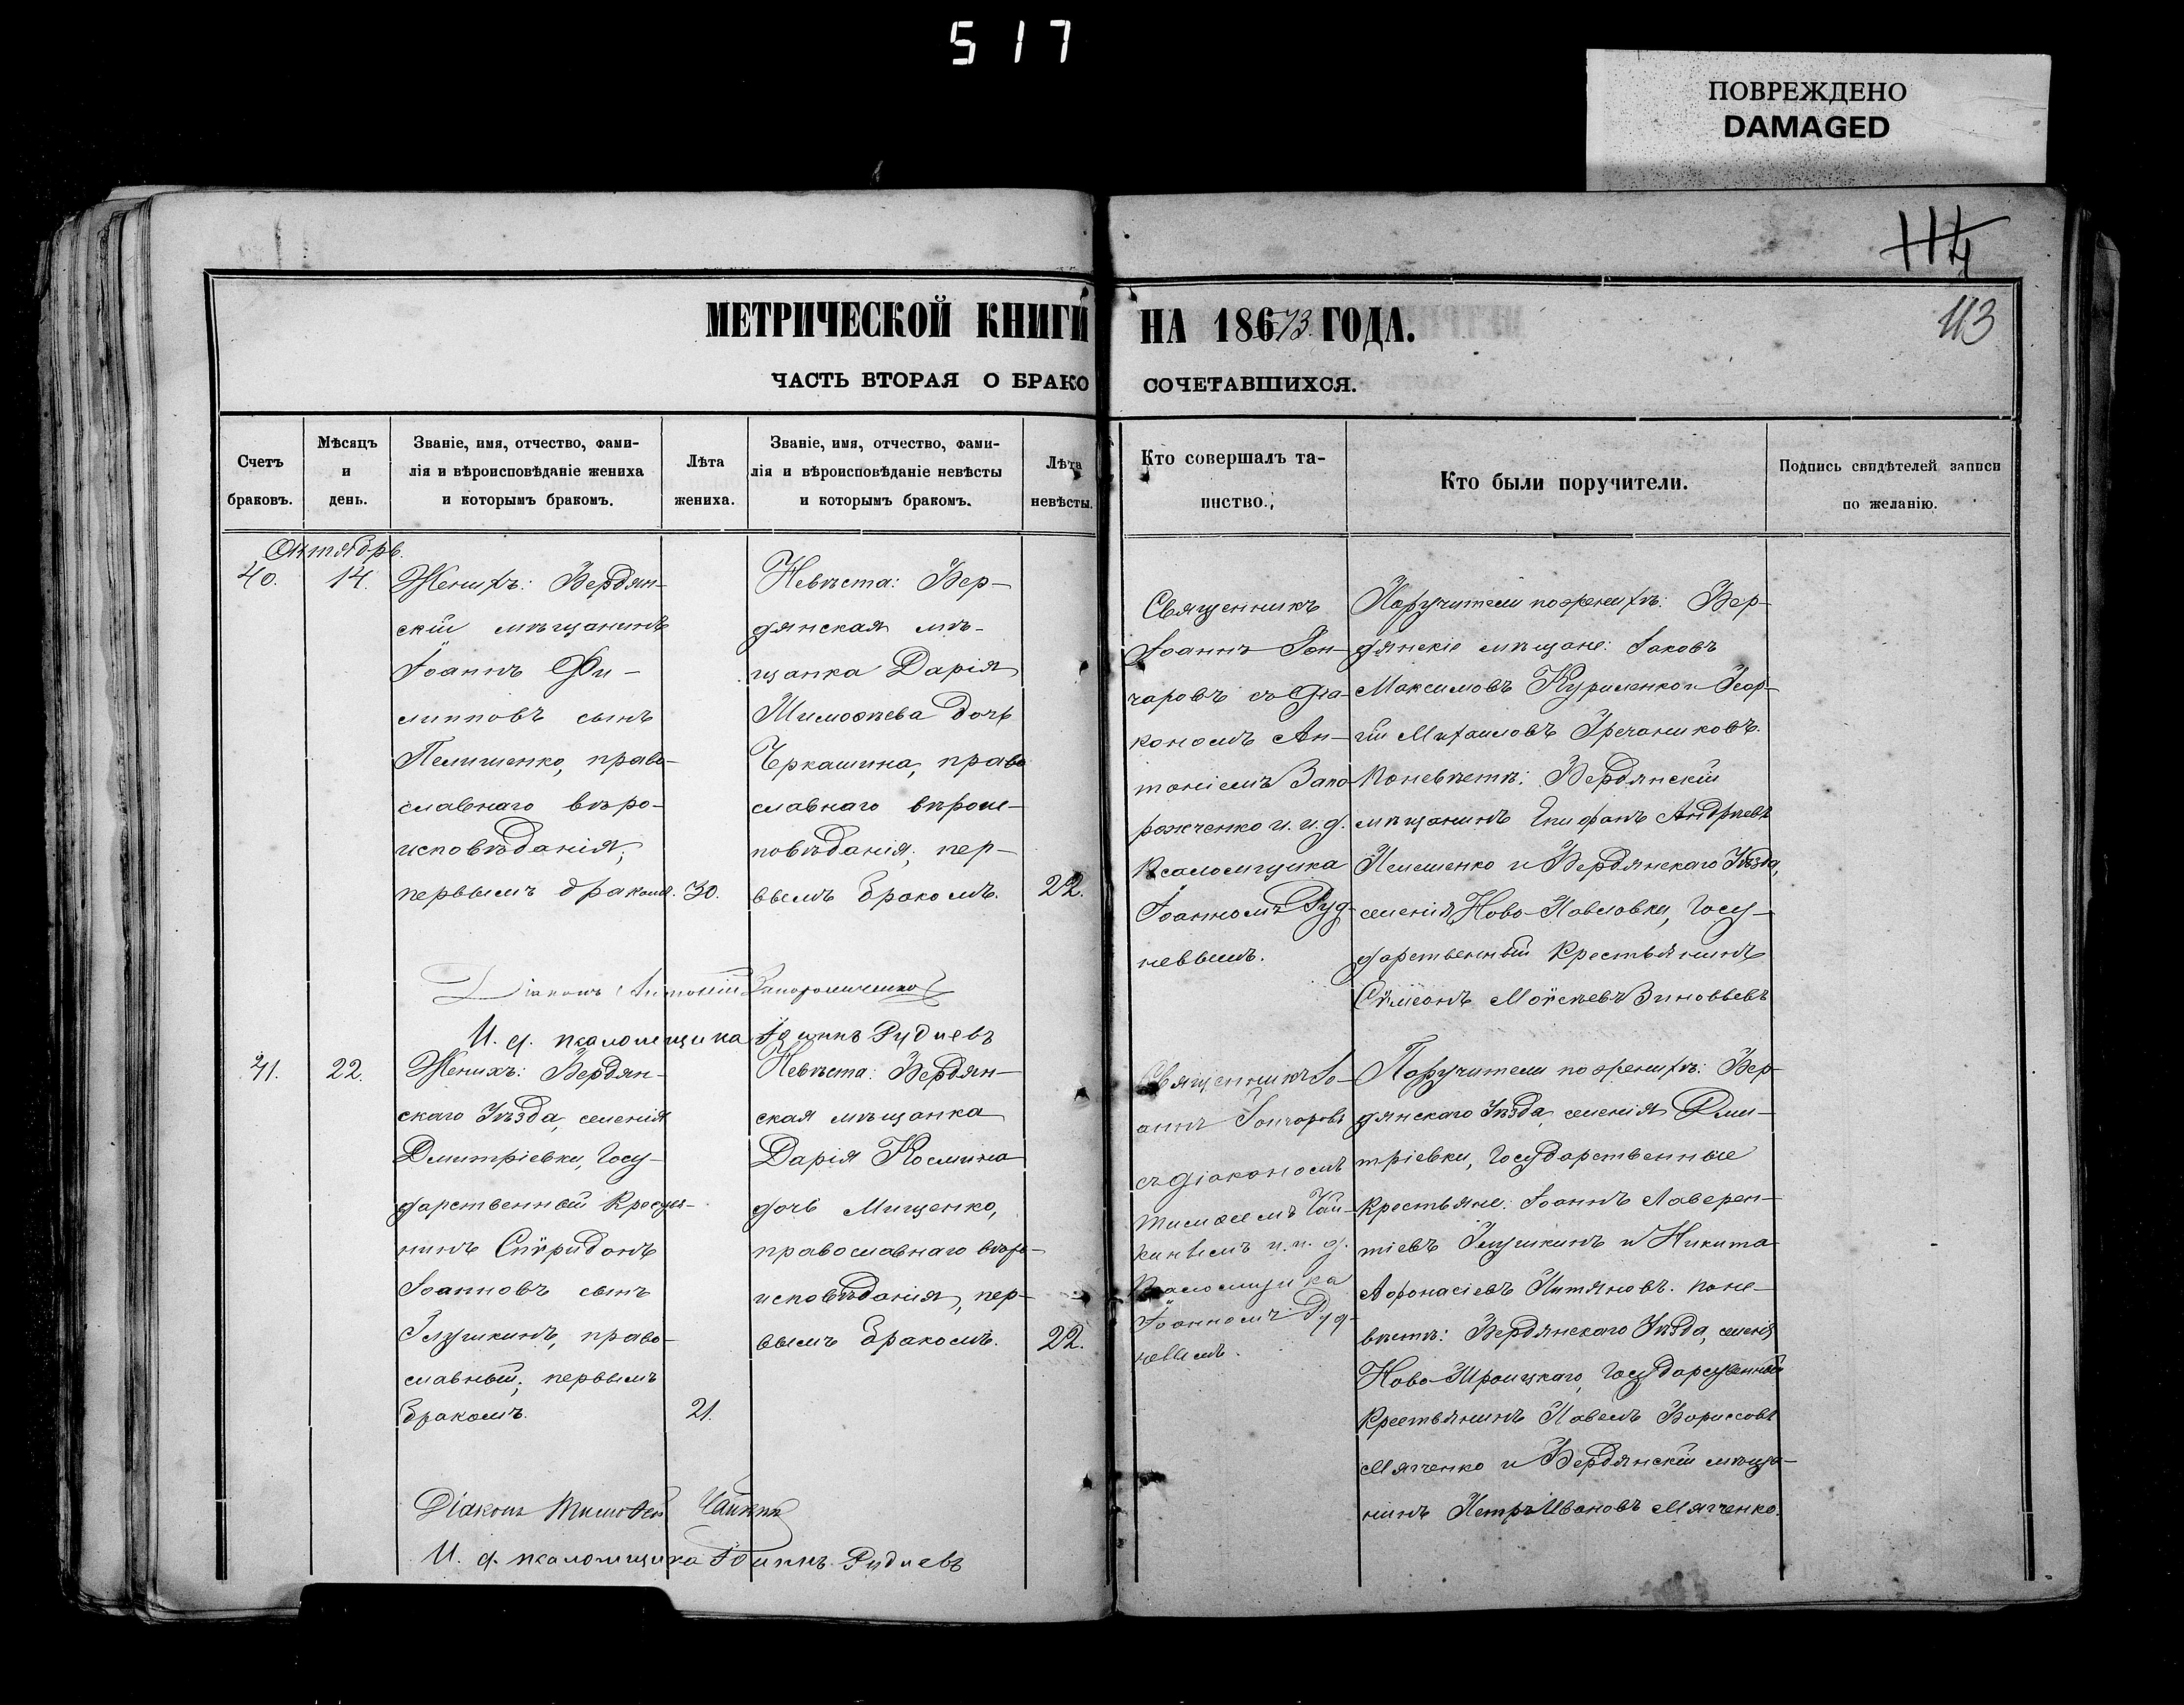 517
ПОВРЕЖДЕНО
DAMAGED
114
113
МЕТРИЧЕСКОЙ КНИГИ НА 18673 ГОДА.
ЧАСТЬ ВТОРАЯ О БРАКОСОЧЕТАВШИХСЯ.
Счетъ браковъ.
Мѣсяцъ и день.
Званіе, имя, отчество, фами-
лія и вѣроисповѣданіе жениха
и которымъ бракомъ.
Лѣта жениха.
Званіе, имя, отчество, фами-
лія и вѣроисповѣданіе невѣсты
и которымъ бракомъ.
Лѣта невѣсты.
Кто совершалъ та-
инство.
Кто были поручители.
Подпись свидѣтелей записи
по желанію.
Октябрь.
40.
14.
Женихъ: Бердян-
скій мѣщанинъ
Іоаннъ Фи-
липповъ сынъ
Пелишенко, право-
славнаго вѣро-
исповѣданія;
первымъ бракомъ.
30.
Невѣста: Бер-
дянская мѣ-
щанка Дарія
Тимоѳѣева дочь
Черкашина, право
славнаго вѣроис-
повѣданія; пер-
вымъ бракомъ.
22.
Священникъ
Іоаннъ Гон-
чаровъ съ діа-
кономъ Ан-
тоніемъ Запо-
рожченко и. и. д.
псаломщика
Іоанномъ Руд-
невымъ.
Поручители по женихѣ: Бер-
дянскіе мѣщане: Іаковъ
Максимовъ Куриленко и Геор-
гій Михаиловъ Гречаниковъ.
По невѣстѣ: Бердянскій
мѣщанинъ Епифанъ Андреевъ
и Бердянскаго Уѣзда,
селенія Ново-Павловки, Госу-
дарственный крестьянинъ
Сѵмеонъ Моѵсеевъ Зиновьевъ
Діаконъ Антоній Запорожченко
И. д. псаломщика Іоаннъ Рудневъ
41.
22.
Женихъ: Бердян-
скаго Уѣзда, селенія
Дмитріевки, Госу-
дарственный Крестья-
нинъ Спѵридонъ
Іоанновъ сынъ
Глушкинъ, право-
славный; первымъ
бракомъ.
21.
Невѣста: Бердян-
ская мѣщанка
Дарія Космина
дочь Мищенко,
православнаго вѣро-
исповѣданія, пер-
вымъ бракомъ.
22.
Священникъ Іо-
аннъ Гончаровъ
съ діакономъ
Тимоѳеемъ Чай-
кинымъ и. и. д.
псаломщика
Іоанномъ Руд-
невымъ.
Поручители по женихѣ: Бер-
дянскаго Уѣзда, селенія Дми-
тріевки, Государственные
крестьяне: Іоаннъ Лаверен-
тіевъ Глушкинъ и Никита
Афонасіевъ Питяновъ. По не-
вѣстѣ: Бердянскаго Уѣзда, селенія
Ново-Троицкаго, Государственный
крестьянинъ Павелъ Борисовъ
Мягченко и Бердянскій мѣща-
нинъ Петръ Ивановъ Мягченко.
Діаконъ Тимоѳей Чайкинъ
И. д. псаломщика Іоаннъ Рудневъ